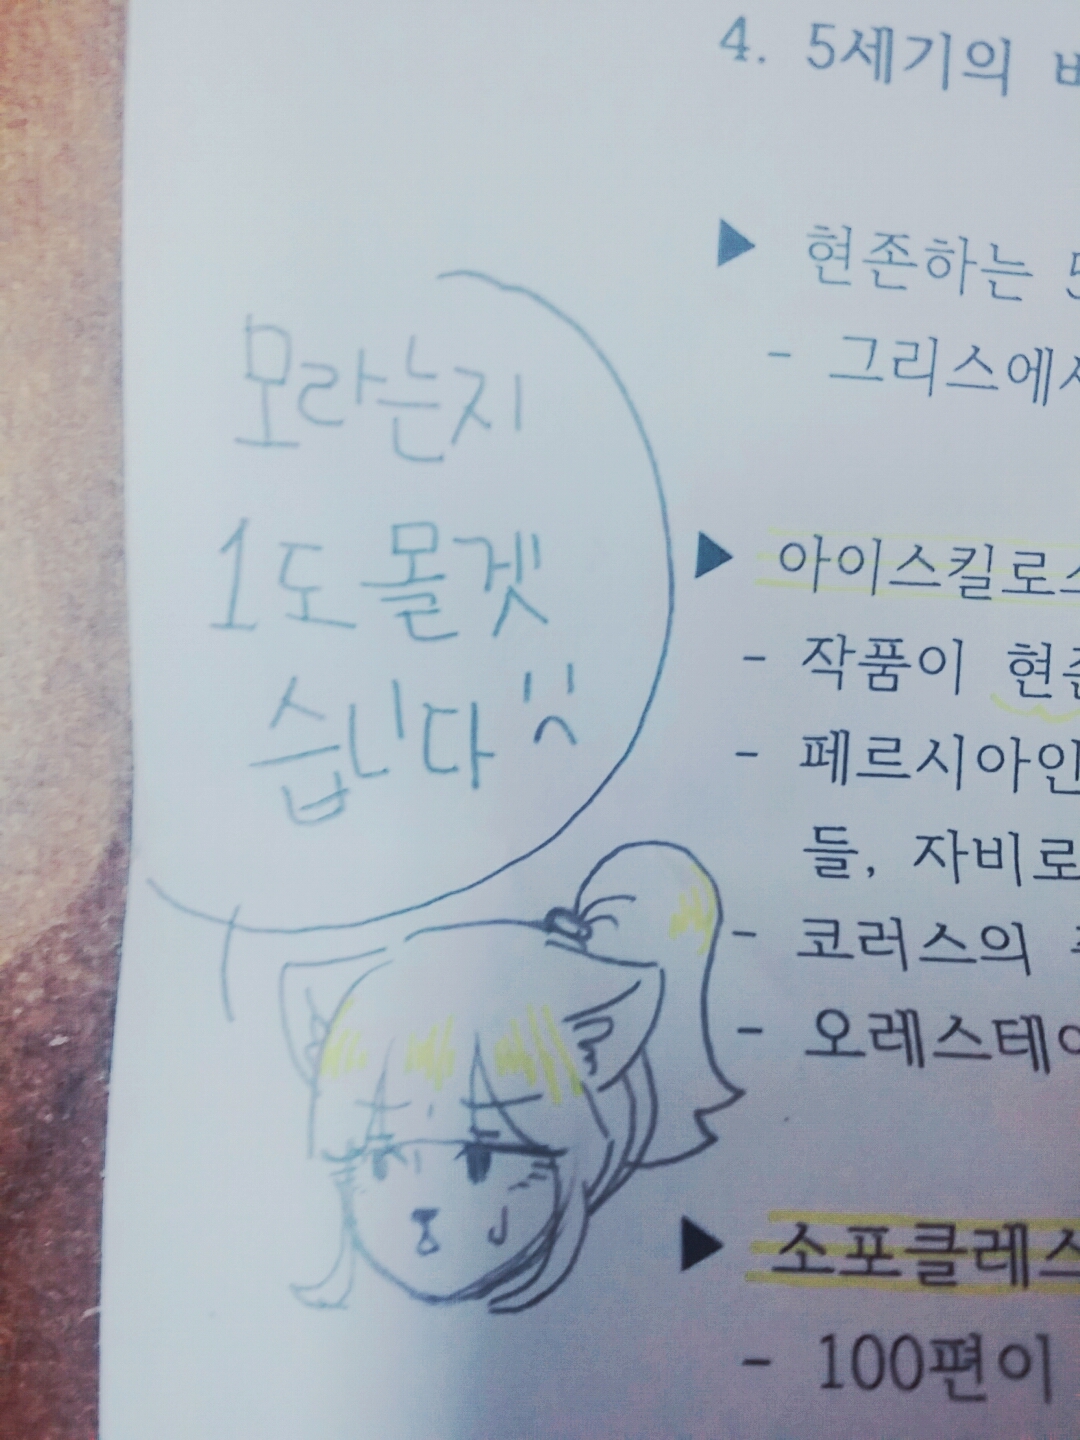 4. 5세기의
▶ 현존하는
- 그리스에서
모라는지
1도 몰겟
습니다
▶ 아이스킬로스
- 작품이 현존
- 페르시아인
들, 자비로
- 코러스의
- 오레스테이
▶ 소포클레스
- 100편이